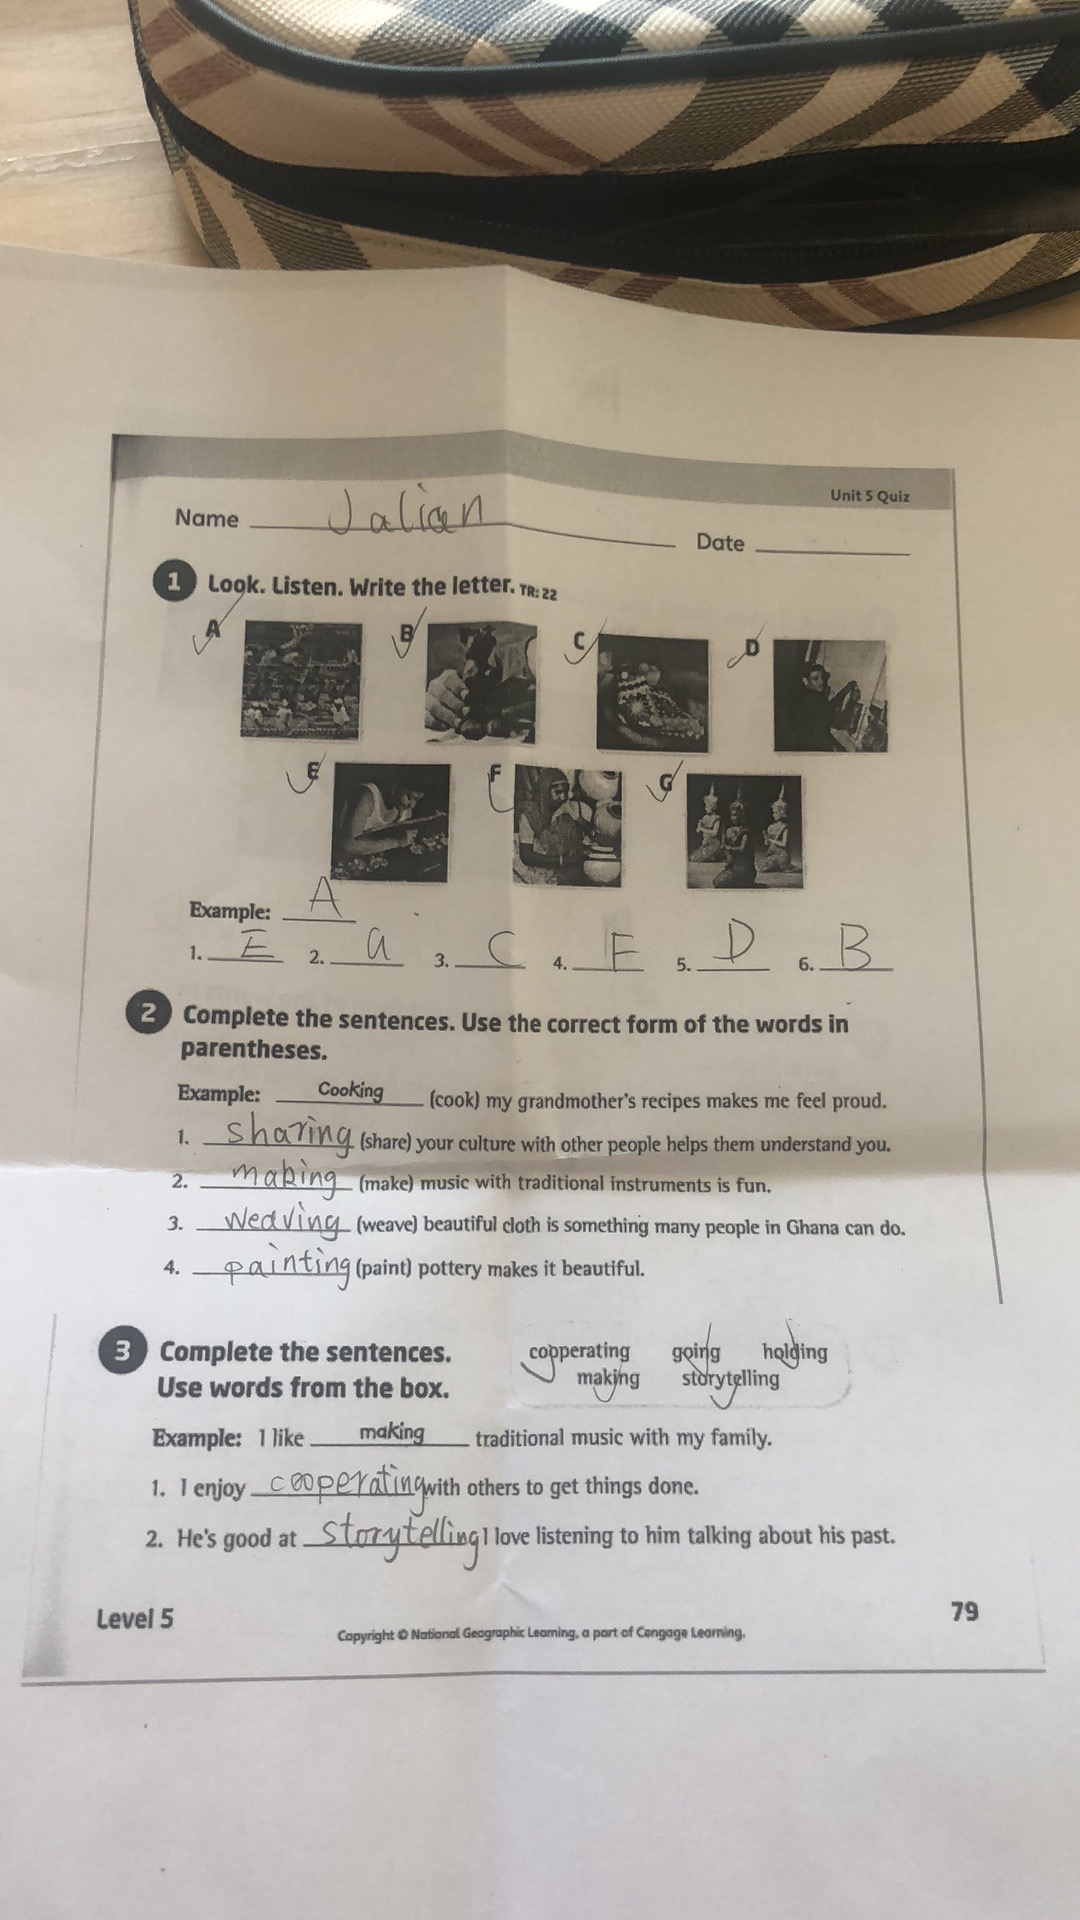 Unit 5 Quiz
Name Jalian Date
1 Look. Listen. Write the letter. TR: 22
A B C D
E F G
Example: A
1. E 2. a 3. C 4. F 5. D 6. B
2 Complete the sentences. Use the correct form of the words in
parentheses.
Example: Cooking (cook) my grandmother's recipes makes me feel proud.
1. sharing (share) your culture with other people helps them understand you.
2. making (make) music with traditional instruments is fun.
3. Weaving (weave) beautiful cloth is something many people in Ghana can do.
4. painting (paint) pottery makes it beautiful.
3 Complete the sentences.
Use words from the box.
cooperating going holding
making storytelling
Example: I like making traditional music with my family.
1. I enjoy cooperating with others to get things done.
2. He's good at storytelling I love listening to him talking about his past.
Level 5
Copyright © National Geographic Learning, a part of Cengage Learning.
79